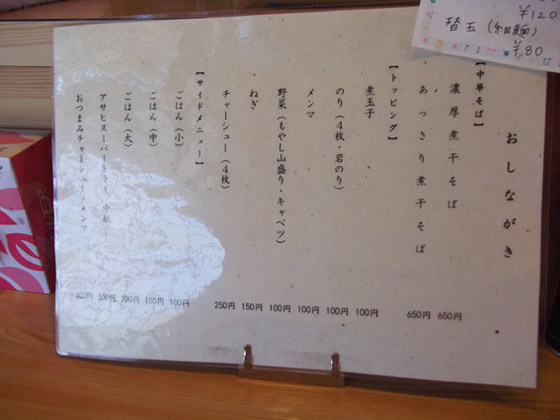 ¥120
替玉(細麺)
¥80
おしながき
【中華そば】
濃厚煮干そば 650円
あっさり煮干そば 650円
【トッピング】
煮玉子 100円
のり(4枚・岩のり) 100円
メンマ 100円
野菜(もやし山盛り・キャベツ) 100円
ねぎ 150円
チャーシュー(4枚) 250円
【サイドメニュー】
ごはん(小) 100円
ごはん(中) 150円
ごはん(大) 200円
アサヒスーパードライ 中瓶 500円
おつまみチャーシュー・メンマ 300円